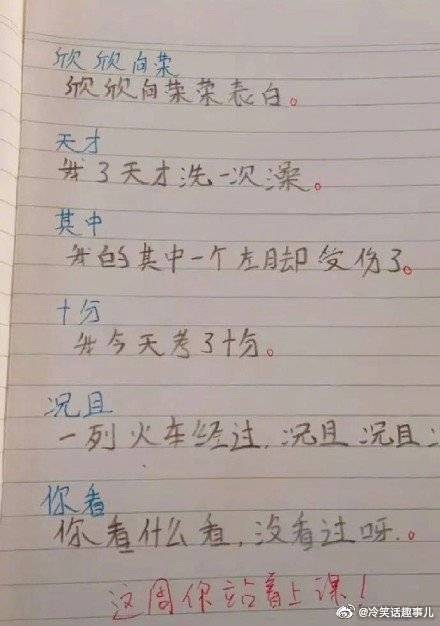 欣欣向荣
欣欣向荣荣表白。
天才
我3天才洗一次澡。
其中
我的其中一个左脚却受伤了。
十分
我今天考了十分。
况且
一列火车经过,况且况且
你看
你看什么看,没看过呀.。
这周你站着上课!
@冷笑话趣事儿